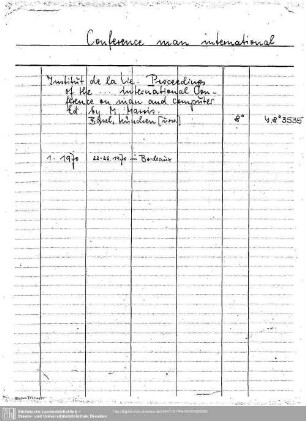 Conference man international
Institut de la Vie. Proceedings
of the ... international Con-
ference on man and computer
Ed. by M. Marois.
Basel, München [usw.] 8° 4.8°3535
1. 1970 22-26 1970 in Bordeaux
Sächsische Landesbibliothek -
Staats- und Universitätsbibliothek Dresden